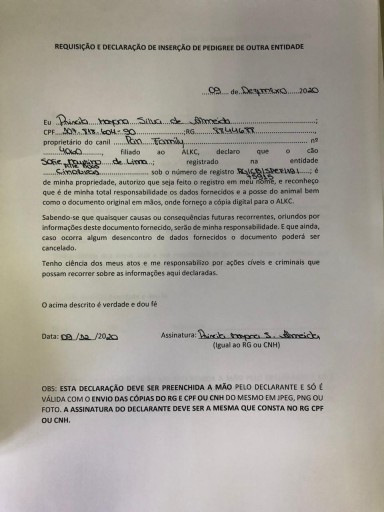 REQUISIÇÃO E DECLARAÇÃO DE INSERÇÃO DE PEDIGREE DE OUTRA ENTIDADE
...09... de Dezembro......2020
Eu Silva de Almeida;
CPF ;RG 8844688,
proprietário do canil Pan Family nº
4060, filiado ao ALKC, declaro que o cão
Sofie de Lima; registrado na entidade
Cinobras sob o número de registro ; é
de minha propriedade, autorizo que seja feito o registro em meu nome, e reconheço
que é de minha total responsabilidade os dados fornecidos e a posse do animal bem
como o documento original em mãos, onde forneço a cópia digital para o ALKC.
Sabendo-se que quaisquer causas ou consequências futuras recorrentes, oriundos por
informações deste documento fornecido, serão de minha responsabilidade. E que ainda,
caso ocorra algum desencontro de dados fornecidos o documento poderá ser
cancelado.
Tenho ciência dos meus atos e me responsabilizo por ações cíveis e criminais que
possam recorrer sobre as informações aqui declaradas.
O acima descrito é verdade e dou fé
Data: 09 /12 /2020 Assinatura: S. Almeida
(Igual ao RG ou CNH)
OBS: ESTA DECLARAÇÃO DEVE SER PREENCHIDA A MÃO PELO DECLARANTE E SÓ É
VÁLIDA COM O ENVIO DAS CÓPIAS DO RG E CPF OU CNH DO MESMO EM JPEG, PNG OU
FOTO. A ASSINATURA DO DECLARANTE DEVE SER A MESMA QUE CONSTA NO RG CPF
OU CNH.